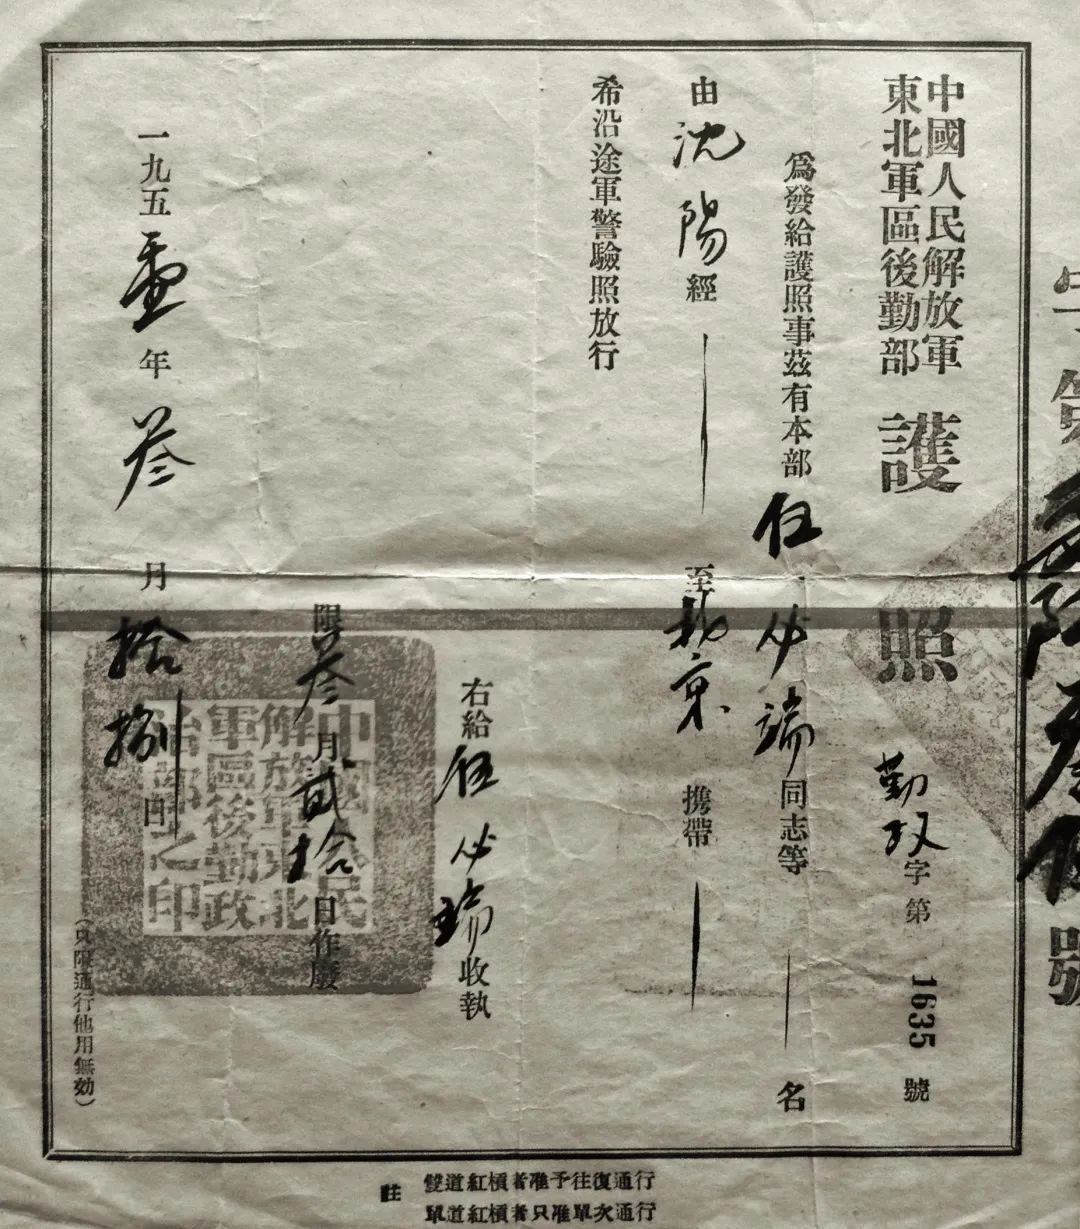 字第
號
中國人民解放軍
東北軍區後勤部
護照
勤政字第1635號
爲發給護照事茲有本部伍必端同志等 名
由沈陽經 至北京携帶
希沿途軍警驗照放行
右給伍必瑞收執
限叁月貳拾日作廢
一九五壹年叁月拾捌日
中國人民
解放軍東北
軍區後勤政
治部之印
（只限通行他用無効）
註
雙道紅槓者准予往復通行
單道紅槓者只准單次通行